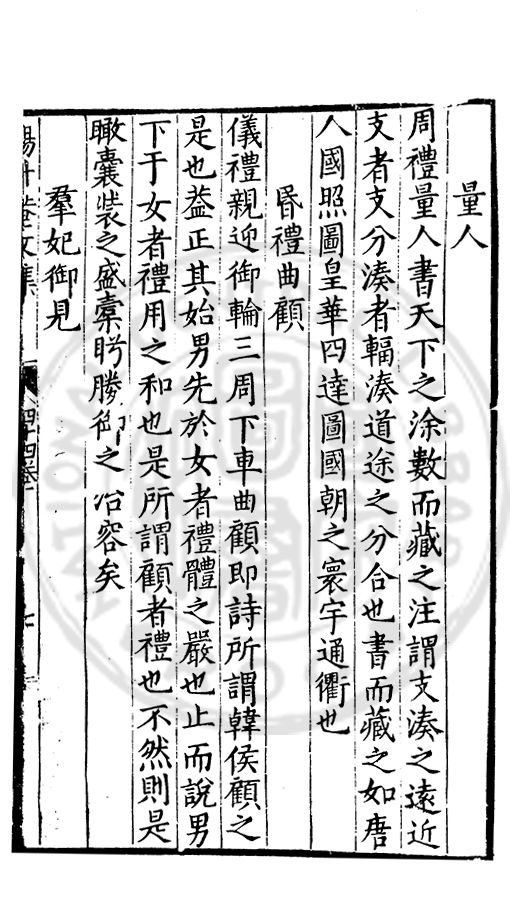 量人
周禮量人書天下之涂數而藏之注謂支湊之遠近
支者支分湊者輻湊道途之分合也書而藏之如唐
人國照圖皇華四達圖國朝之寰宇通衢也
昏禮曲顧
儀禮親迎御輪三周下車曲顧即詩所謂韓侯顧之
是也葢正其始男先於女者禮體之嚴也止而說男
下于女者禮用之和也是所謂顧者禮也不然則是
瞰囊裝之盛橐眄勝御之冶容矣
羣妃御見